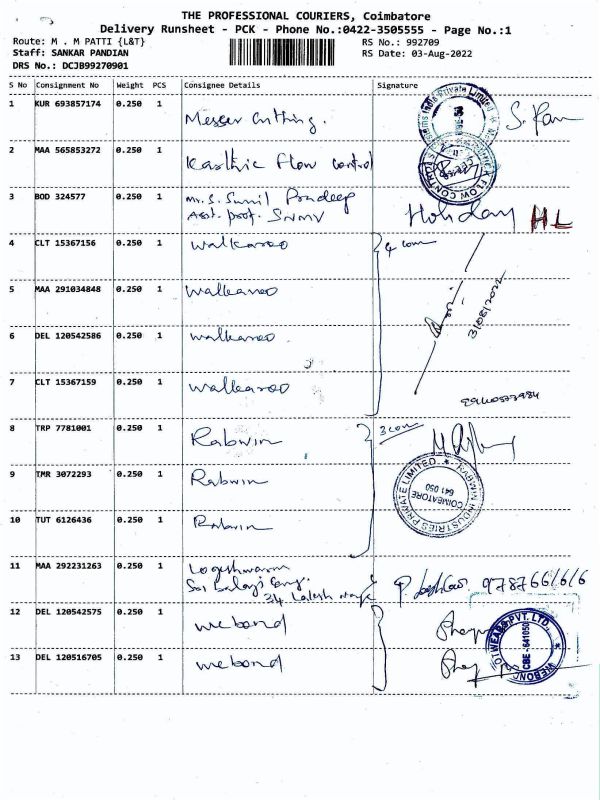 THE PROFESSIONAL COURIERS, Coimbatore
Delivery Runsheet - PCK - Phone No.:0422-3505555 - Page No.:1
Route: M . M PATTI {L&T}
RS No.: 992709
Staff: SANKAR PANDIAN
RS Date: 03-Aug-2022
DRS No.: DCJB99270901
S No Consignment No Weight PCS Consignee Details Signature
1 KUR 693857174 0.250 1 Messer Cutting. S. Ram
2 MAA 565853272 0.250 1 Karthic Flow control
3 BOD 324577 0.250 1 Mr. S. Sunil Pradeep
Asst. prof. SNMV Holiday HL
4 CLT 15367156 0.250 1 walkaroo 4 con
5 MAA 291034848 0.250 1 walkaroo
3/08/2022
6 DEL 120542586 0.250 1 walkaroo
7 CLT 15367159 0.250 1 walkaroo
8 TRP 7781001 0.250 1 Rabwin 3 con
9 TMR 3072293 0.250 1 Rabwin
RABWIN INDUSTRIES PRIVATE LIMITED
COIMBATORE
641 050
10 TUT 6126436 0.250 1 Rabwin
11 MAA 292231263 0.250 1 Logeshwaran
Sri Balaji
34 9787661616
12 DEL 120542575 0.250 1 webond
13 DEL 120516705 0.250 1 webond
CBE - 641050